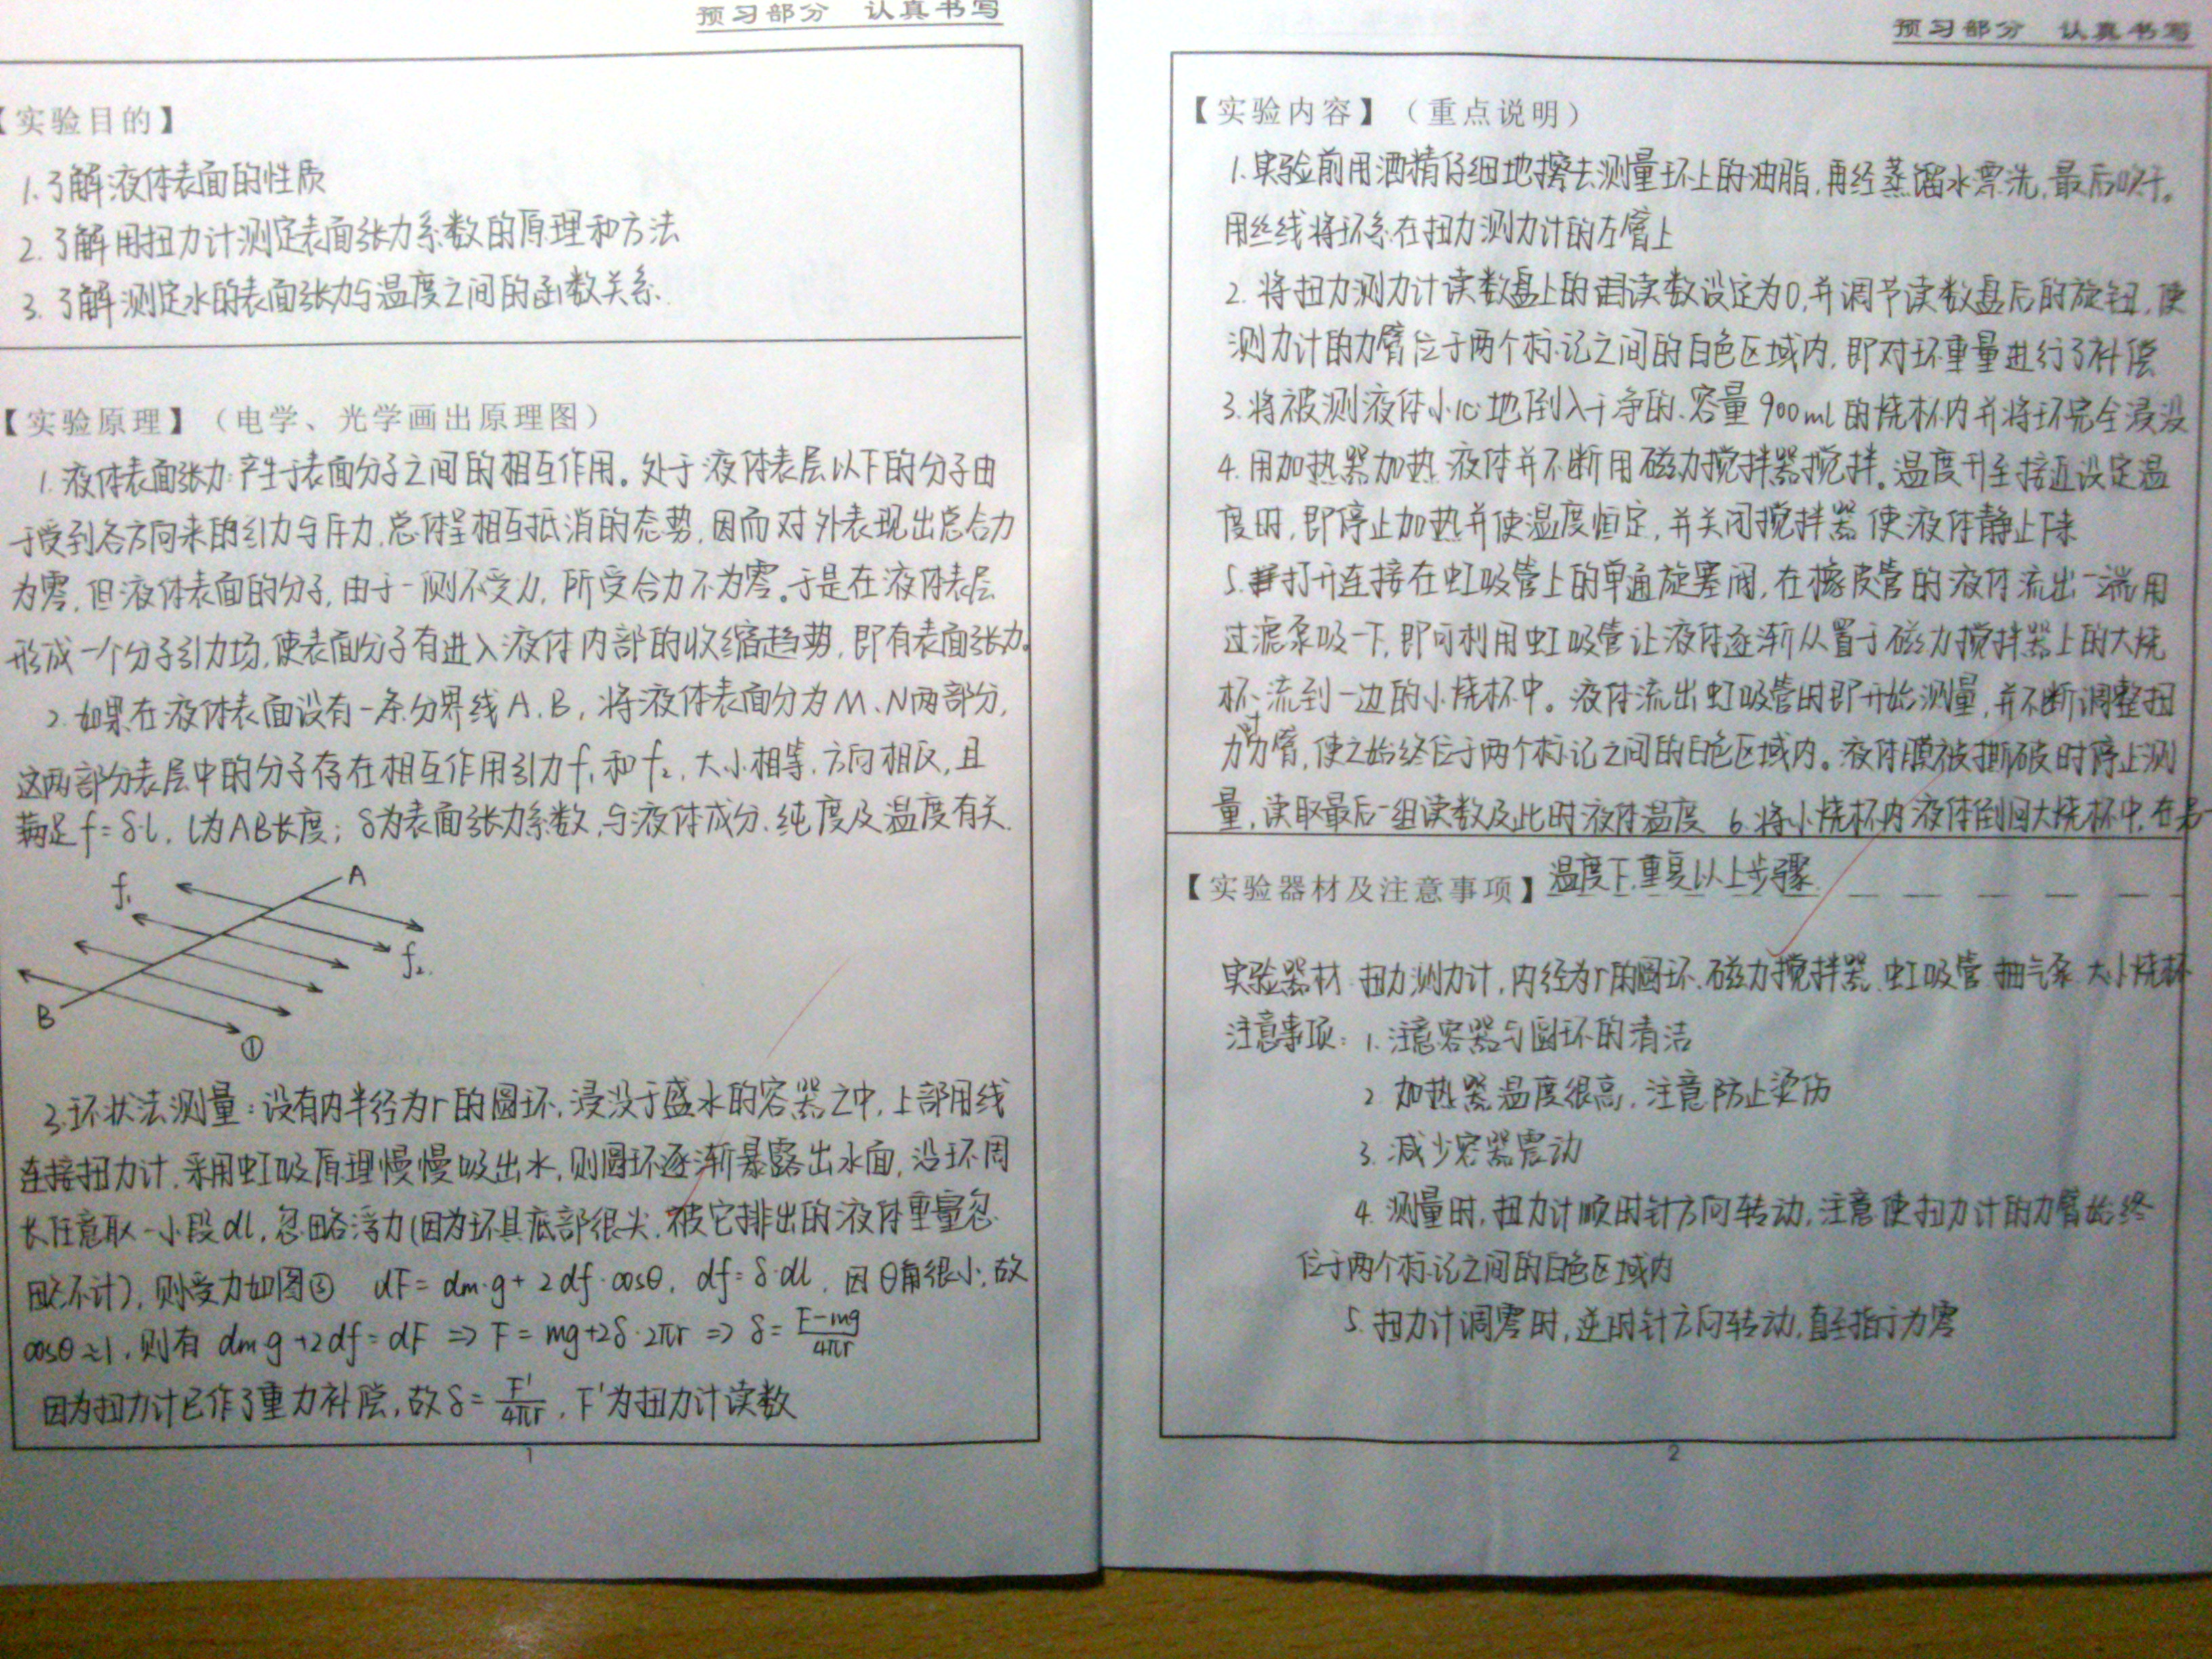 预习部分 认真书写
【实验目的】
1.了解液体表面的性质
2.了解用扭力计测定表面张力系数的原理和方法
3.了解测定水的表面张力与温度之间的函数关系.
【实验原理】（电学、光学画出原理图）
1.液体表面张力:产生于表面分子之间的相互作用。处于液体表层以下的分子由
于受到各方向来的引力与斥力,总体呈相互抵消的态势,因而对外表现出总合力
为零,但液体表面的分子,由于一侧不受力,所受合力不为零。于是在液体表层
形成一个分子引力场,使表面分子有进入液体内部的收缩趋势,即有表面张力。
2.如果在液体表面设有一条分界线A、B,将液体表面分为M、N两部分,
这两部分表层中的分子存在相互作用引力f₁和f₂,大小相等,方向相反,且
满足f=δl, l为AB长度;δ为表面张力系数,与液体成分、纯度及温度有关.
f₁
A
f₂
B
①
3.环状法测量:设有内半径为r的圆环,浸没于盛水的容器之中,上部用线
连接扭力计,采用虹吸原理慢慢吸出水,则圆环逐渐暴露出水面,沿环周
长任意取一小段dl,忽略浮力(因为环具底部很尖,被它排出的液体重量忽
略不计),则受力如图② dF=dm·g+2df·cosθ, df=δ·dl, 因θ角很小,故
cosθ≈1,则有 dm·g+2df=dF ⇒ F=mg+2δ·2πr ⇒ δ=(F-mg)/4πr
因为扭力计已作了重力补偿,故δ=F'/4πr, F'为扭力计读数
1
预习部分 认真书写
【实验内容】（重点说明）
1.实验前用酒精仔细地擦去测量环上的油脂,再经蒸馏水漂洗,最后吹干。
用丝线将环系在扭力测力计的左臂上
2.将扭力测力计读数盘上的读数设定为0,并调节读数盘后的旋钮,使
测力计的力臂位于两个标记之间的白色区域内,即对环重量进行了补偿
3.将被测液体小心地倒入干净的、容量900ml的烧杯内并将环完全浸没
4.用加热器加热液体并不断用磁力搅拌器搅拌。温度升至接近设定温
度时,即停止加热并使温度恒定,并关闭搅拌器使液体静止下来
5.打开连接在虹吸管上的单通旋塞阀,在橡皮管的液体流出一端用
过滤泵吸一下,即可利用虹吸管让液体逐渐从置于磁力搅拌器上的大烧
杯流到一边的小烧杯中。液体流出虹吸管时即开始测量,并不断调整扭
力计力臂,使之始终位于两个标记之间的白色区域内。液体膜被撕破时停止测
量,读取最后一组读数及此时液体温度 6.将小烧杯内液体倒回大烧杯中,在
温度下重复以上步骤
【实验器材及注意事项】
实验器材:扭力测力计,内径为r的圆环、磁力搅拌器、虹吸管、抽气泵、大小烧杯
注意事项:1.注意容器与圆环的清洁
2 加热器温度很高,注意防止烫伤
3.减少容器震动
4.测量时,扭力计顺时针方向转动,注意使扭力计的力臂始终
位于两个标记之间的白色区域内
5.扭力计调零时,逆时针方向转动,直至指示为零
2